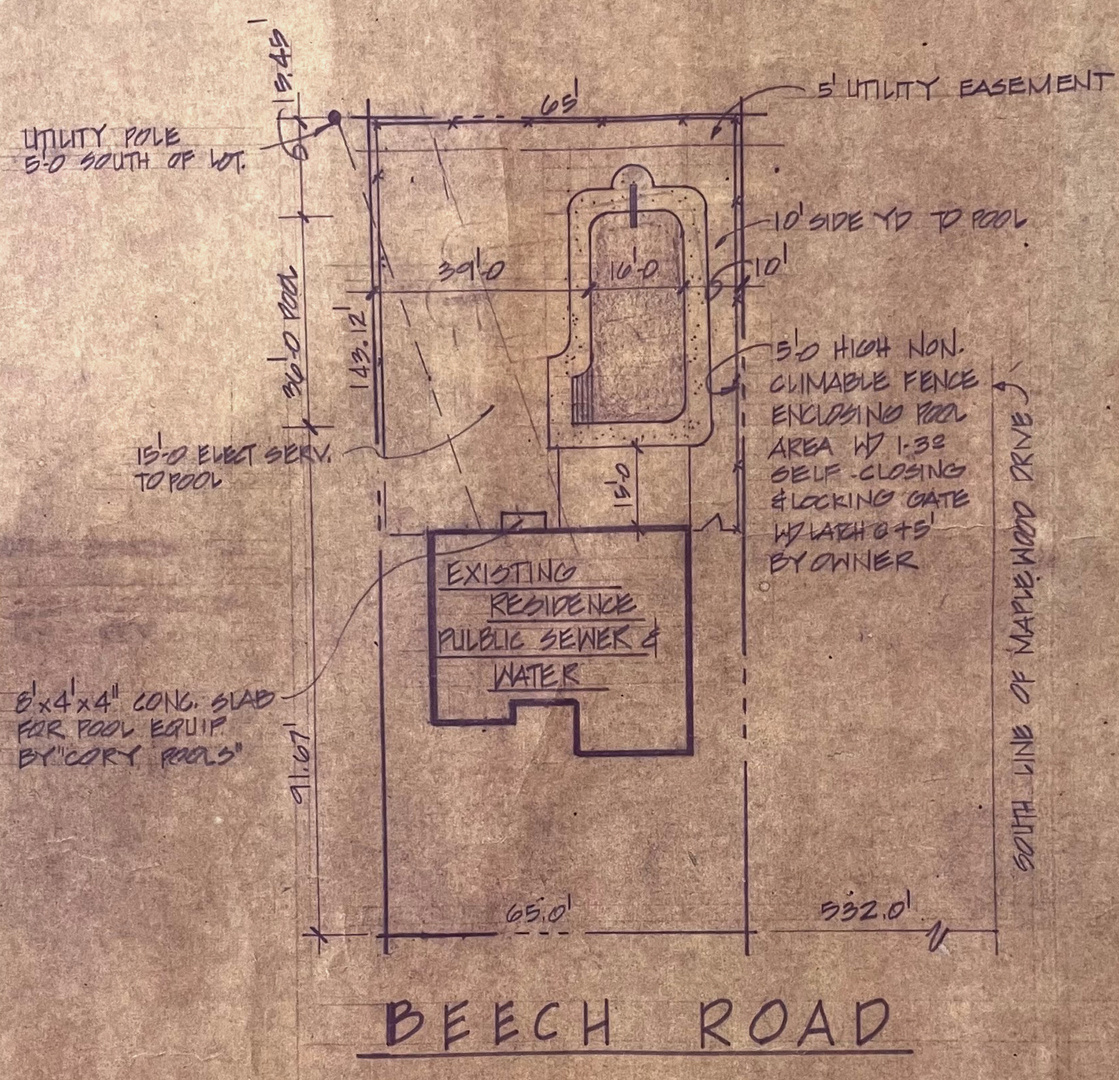 15.45'
65'
5' UTILITY EASEMENT
UTILITY POLE
5'-0 SOUTH OF LOT.
10' SIDE YD TO POOL
39'-0
16'-0
10'
36'-0 POOL
143.12'
5'-0 HIGH NON.
CLIMABLE FENCE
ENCLOSING POOL
AREA W/ 1-3º
SELF-CLOSING
& LOCKING GATE
W/ LATCH @ +5'
BY OWNER
15'-0 ELECT SERV.
TO POOL
15'-0
SOUTH LINE OF MAPLEWOOD DRIVE
EXISTING
RESIDENCE
PULBLIC SEWER &
WATER
8'x4'x4" CONC. SLAB
FOR POOL EQUIP.
BY "CORY POOLS"
91.67'
65.0'
532.0'
BEECH ROAD